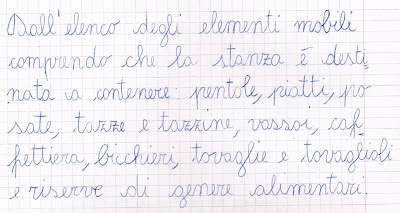 Dall'elenco degli elementi mobili
comprendo che la stanza è desti
nata a contenere: pentole, piatti, po
sate, tazze e tazzine, vassoi, caf
fettiera, bicchieri, tovaglie e tovaglioli
e riserve di genere alimentari.